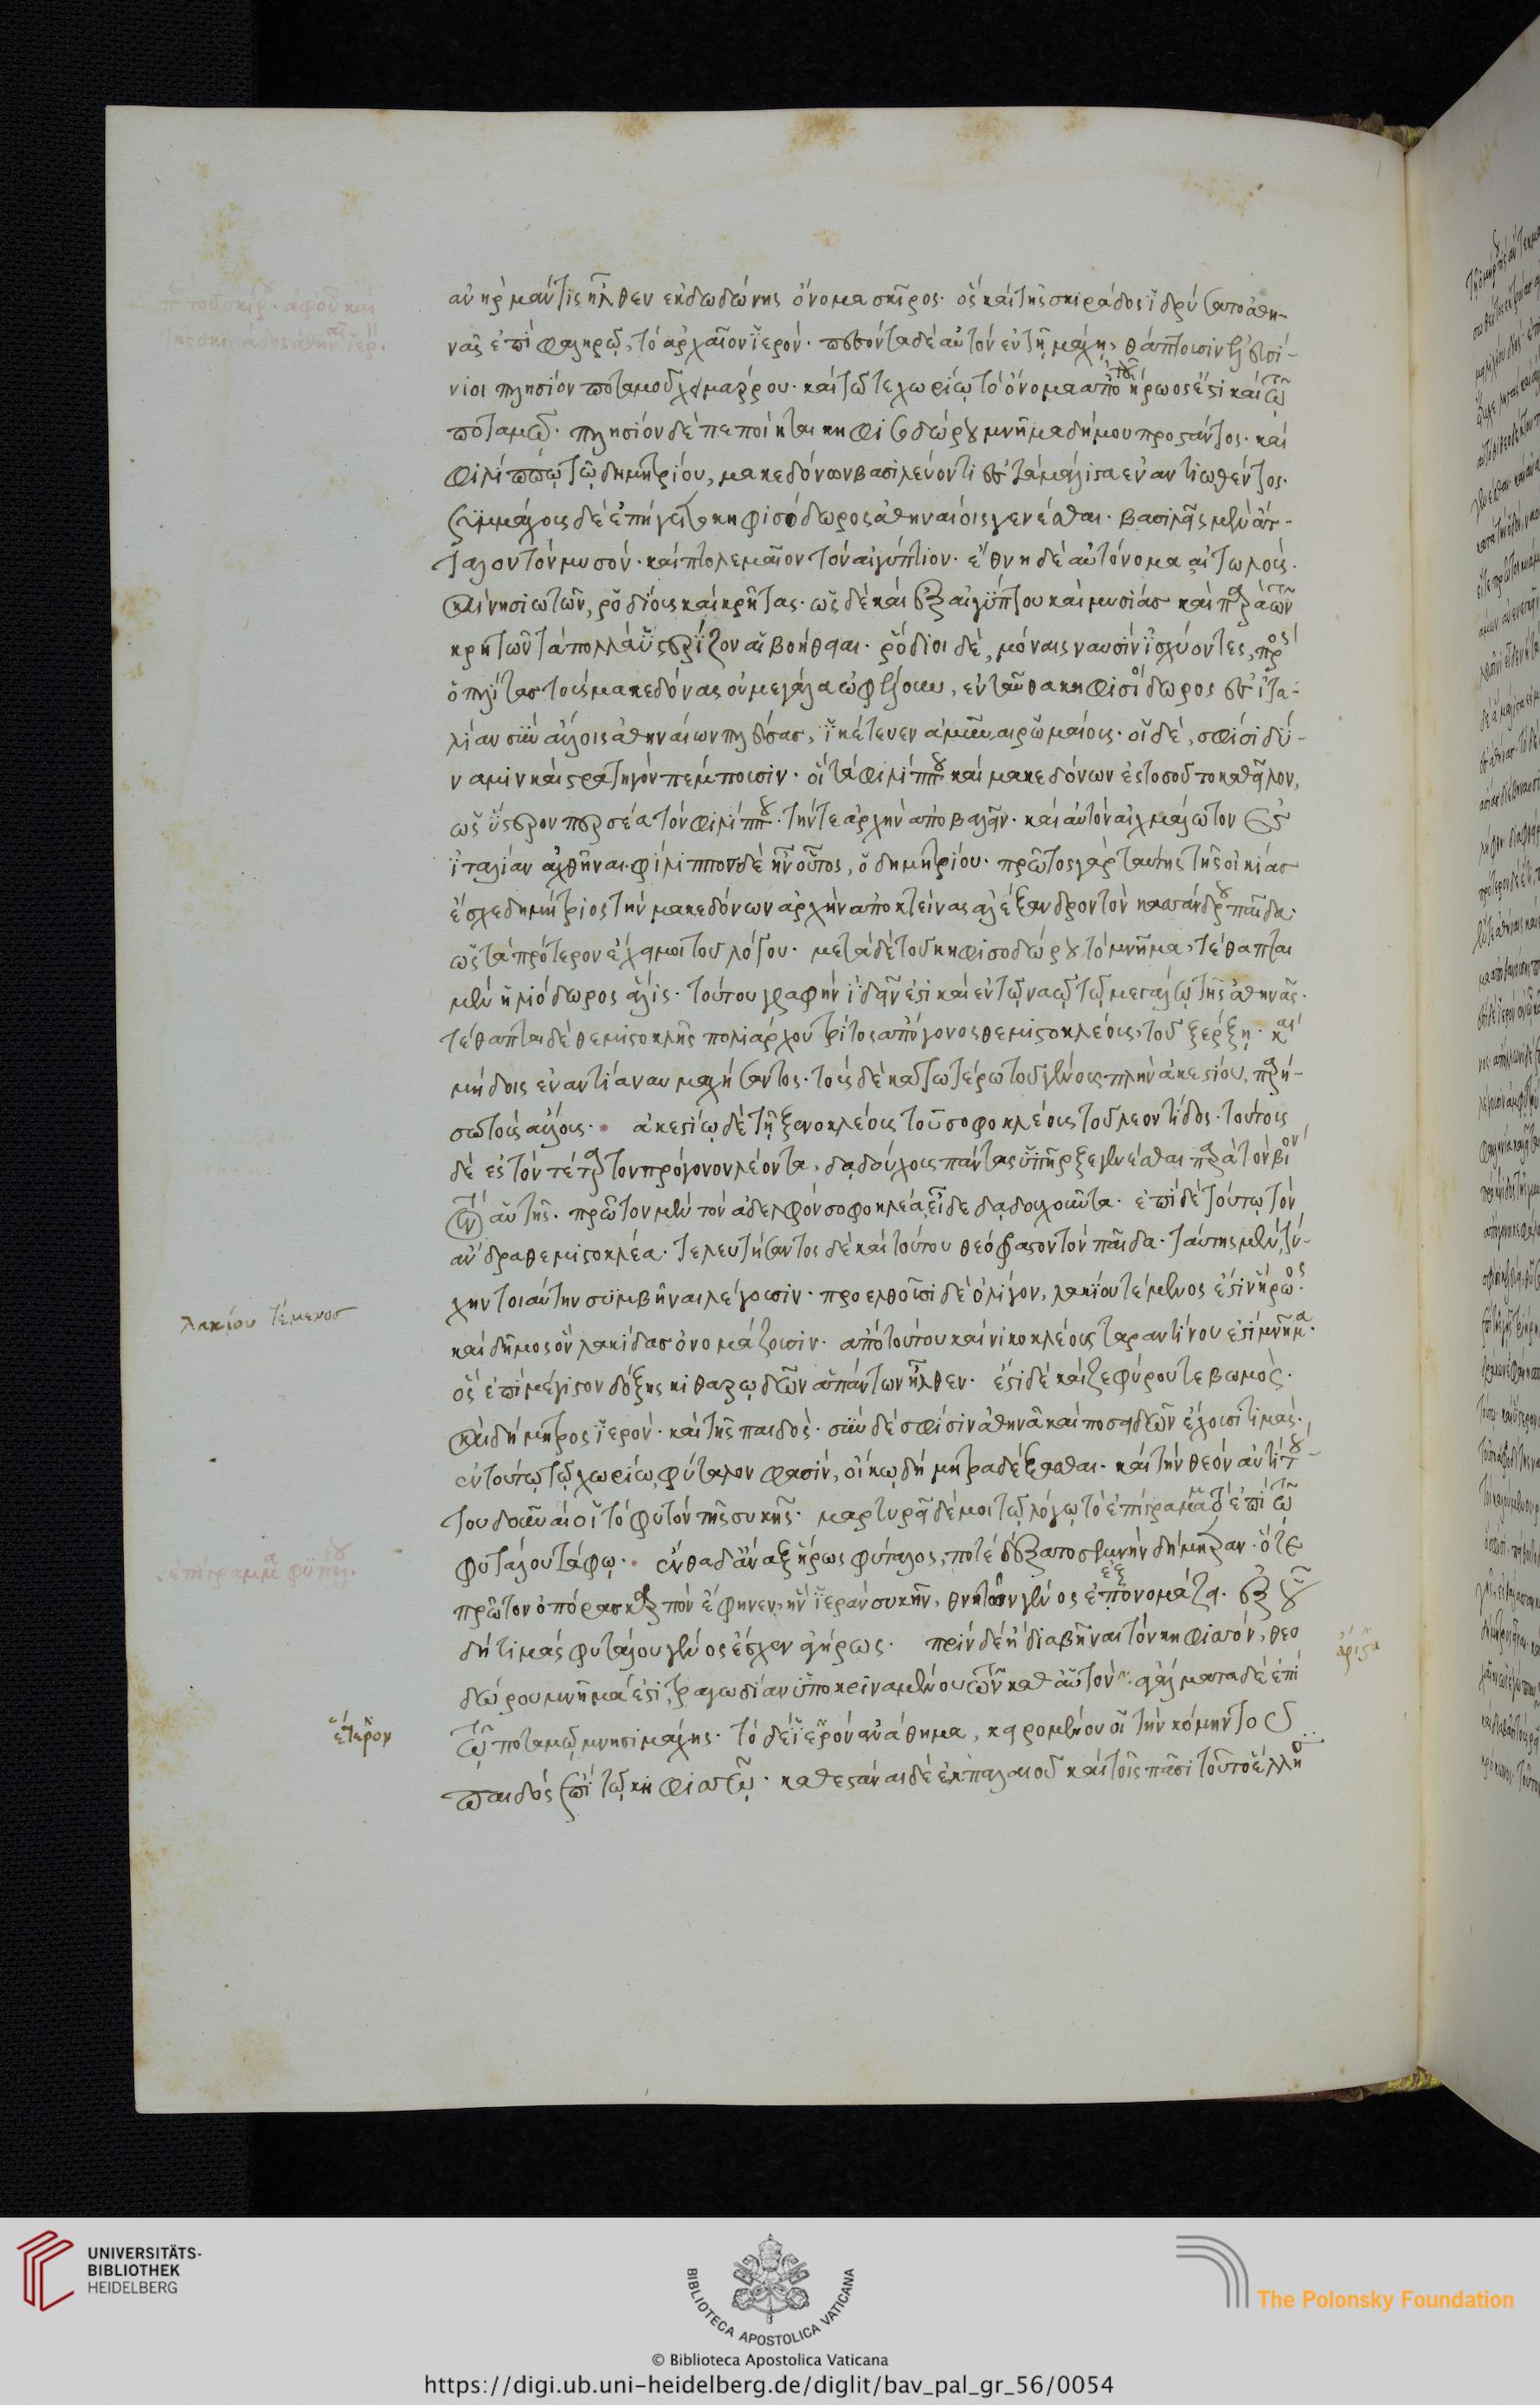 ἀνὴρ μάντις ἦλθεν ἐκ δωδώνης ὄνομα σκῖρος· ὃς καὶ τῆς σκιράδος ἱδρύσατο ἀθη-
νᾶς ἐπὶ φαληρῷ, τὸ ἀρχαῖον ἱερόν· πεσόντα δὲ αὐτὸν ἐν τῇ μάχῃ, θάπτουσιν ἐλευσί-
νιοι πλησίον ποταμοῦ χειμάρρου· καὶ τῷ τε χωρίῳ τὸ ὄνομα ἀπὸ τοῦ ἥρωος ἐστι καὶ τῷ
ποταμῷ· πλησίον δὲ πεποίηται κηφισοδώρου μνῆμα δήμου προστάντος· καὶ
φιλίππῳ τῷ δημητρίου, μακεδόνων βασιλεύοντι ἐς τὰ μάλιστα ἐναντιωθέντος·
συμμάχους δὲ ἐπήγετο κηφισόδωρος ἀθηναίοις γενέσθαι· βασιλεῖς μὲν ἄτ-
ταλον τὸν μυσόν· καὶ πτολεμαῖον τὸν αἰγύπτιον· ἔθνη δὲ αὐτόνομα αἰτωλούς·
καὶ νησιωτῶν, ῥοδίους καὶ κρῆτας· ὡς δὲ καὶ ἐξ αἰγύπτου καὶ μυσίας καὶ παρὰ τῶν
κρητῶν τὰ πολλὰ ὑστέριζον αἱ βοήθειαι· ῥόδιοι δὲ, μόναις ναυσὶν ἰσχύοντες, πρὸς
ὁπλίτας τοὺς μακεδόνας οὐ μεγάλα ὠφέλουν, ἐνταῦθα κηφισόδωρος ἐς ἰτα-
λίαν σὺν ἄλλοις ἀθηναίων πλεύσας, ἱκέτευεν ἀμῦναι ῥωμαίους· οἱ δὲ, σφίσι δύ-
ναμιν καὶ στρατηγὸν πέμπουσιν· οἳ τὰ φιλίππου καὶ μακεδόνων ἐς τοσοῦτο καθεῖλον,
ὡς ὕστερον περσέα τὸν φιλίππου· τήν τε ἀρχὴν ἀποβαλεῖν· καὶ αὐτὸν αἰχμάλωτον ἐς
ἰταλίαν ἀχθῆναι· φίλιππον δὲ ἦν οὗτος, ὁ δημητρίου· πρῶτος γὰρ ταύτης τῆς οἰκίας
ἔσχε δημήτριος τὴν μακεδόνων ἀρχὴν ἀποκτείνας ἀλέξανδρον τὸν κασσάνδρου παῖδα·
ὡς τὰ πρότερον ἔχει μοι τοῦ λόγου· μετὰ δὲ τοῦ κηφισοδώρου τὸ μνῆμα, τέθαπται
μὲν ἡλιόδωρος ἅλις· τούτου γραφὴν ἰδεῖν ἐστι καὶ ἐν τῷ ναῷ τῷ μεγάλῳ τῆς ἀθηνᾶς·
τέθαπται δὲ θεμιστοκλῆς πολιάρχου τρίτος ἀπόγονος θεμιστοκλέους, τοῦ ξέρξῃ· καὶ
μήδοις ἐναντία ναυμαχήσαντος· τοὺς δὲ κατωτέρω τοῦ γένους πλὴν ἀκεστίου, παρή-
σω τοὺς ἄλλους· ἀκεστίῳ δὲ τῇ ξενοκλέους τοῦ σοφοκλέους τοῦ λέοντίδος· τούτους
δὲ ἐς τὸν τέταρτον πρόγονον λέοντα, δᾳδούχους πάντας ὑπῆρξε γενέσθαι· παρὰ τὸν βίον
τὸν αὑτῆς· πρῶτον μὲν τὸν ἀδελφὸν σοφοκλέα, εἶδε δᾳδουχοῦντα· ἐπὶ δὲ τούτῳ τὸν
ἄνδρα θεμιστοκλέα· τελευτήσαντος δὲ καὶ τούτου θεόφραστον τὸν παῖδα· ταύτης μὲν τύ-
χην τοιαύτην συμβῆναι λέγουσιν· προελθοῦσι δὲ ὀλίγον, λακίου τέμενός ἐστιν ἥρωος·
καὶ δῆμος ὃν λακίδας ὀνομάζουσιν· ἀπὸ τούτου καὶ νικοκλέους ταραντίνου ἐστὶ μνῆμα·
ὃς ἐπὶ μέγιστον δόξης κιθαρῳδῶν ἁπάντων ἦλθεν· ἔστι δὲ καὶ ζεφύρου τε βωμός·
καὶ δήμητρος ἱερόν· καὶ τῆς παιδός· σὺν δέ σφισιν ἀθηνᾶ καὶ ποσειδῶν ἔχουσι τιμάς·
ἐν τούτῳ τῷ χωρίῳ φύταλον φασίν, οἴκῳ δήμητρα δέξασθαι· καὶ τὴν θεὸν ἀντὶ τού-
του δοῦναι οἱ τὸ φυτὸν τῆς συκῆς· μαρτυρεῖ δέ μοι τῷ λόγῳ τὸ ἐπίγραμμα τὸ ἐπὶ τῷ
φυτάλου τάφῳ· ἐνθάδ᾽ ἄναξ ἥρως φύταλος, ποτὲ δέξατο σεμνὴν δήμητραν· ὅτε
πρῶτον ὀπώρας καρπὸν ἔφηνεν, ἣν ἱερὰν συκῆν, θνητῶν γένος ἐξονομάζει· ἐξ οὗ
δὴ τιμὰς φυτάλου γένος ἔσχεν ἀγήρως· πρὶν δὲ ἢ διαβῆναι τὸν κηφισσόν, θεο
δώρου μνῆμά ἐστι, τραγῳδίαν ὑποκρινομένου τῶν καθ᾽ αὑτὸν ἀγάλματα δὲ ἐπὶ
τῷ ποταμῷ, μνησιμάχης· τὸ δὲ ἕτερον ἀνάθημα, κειρομένου οἱ τὴν κόμην τοῦ
παιδὸς ἐπὶ τῷ κηφισσῷ· καθεστάναι δὲ ἐκ παλαιοῦ καὶ τοῖς πᾶσι τοῦτο ἕλλησι
λακίου τέμενος
ἕτερον
ἄριστα
UNIVERSITÄTS-
BIBLIOTHEK
HEIDELBERG
BIBLIOTECA APOSTOLICA VATICANA
The Polonsky Foundation
© Biblioteca Apostolica Vaticana
https://digi.ub.uni-heidelberg.de/diglit/bav_pal_gr_56/0054